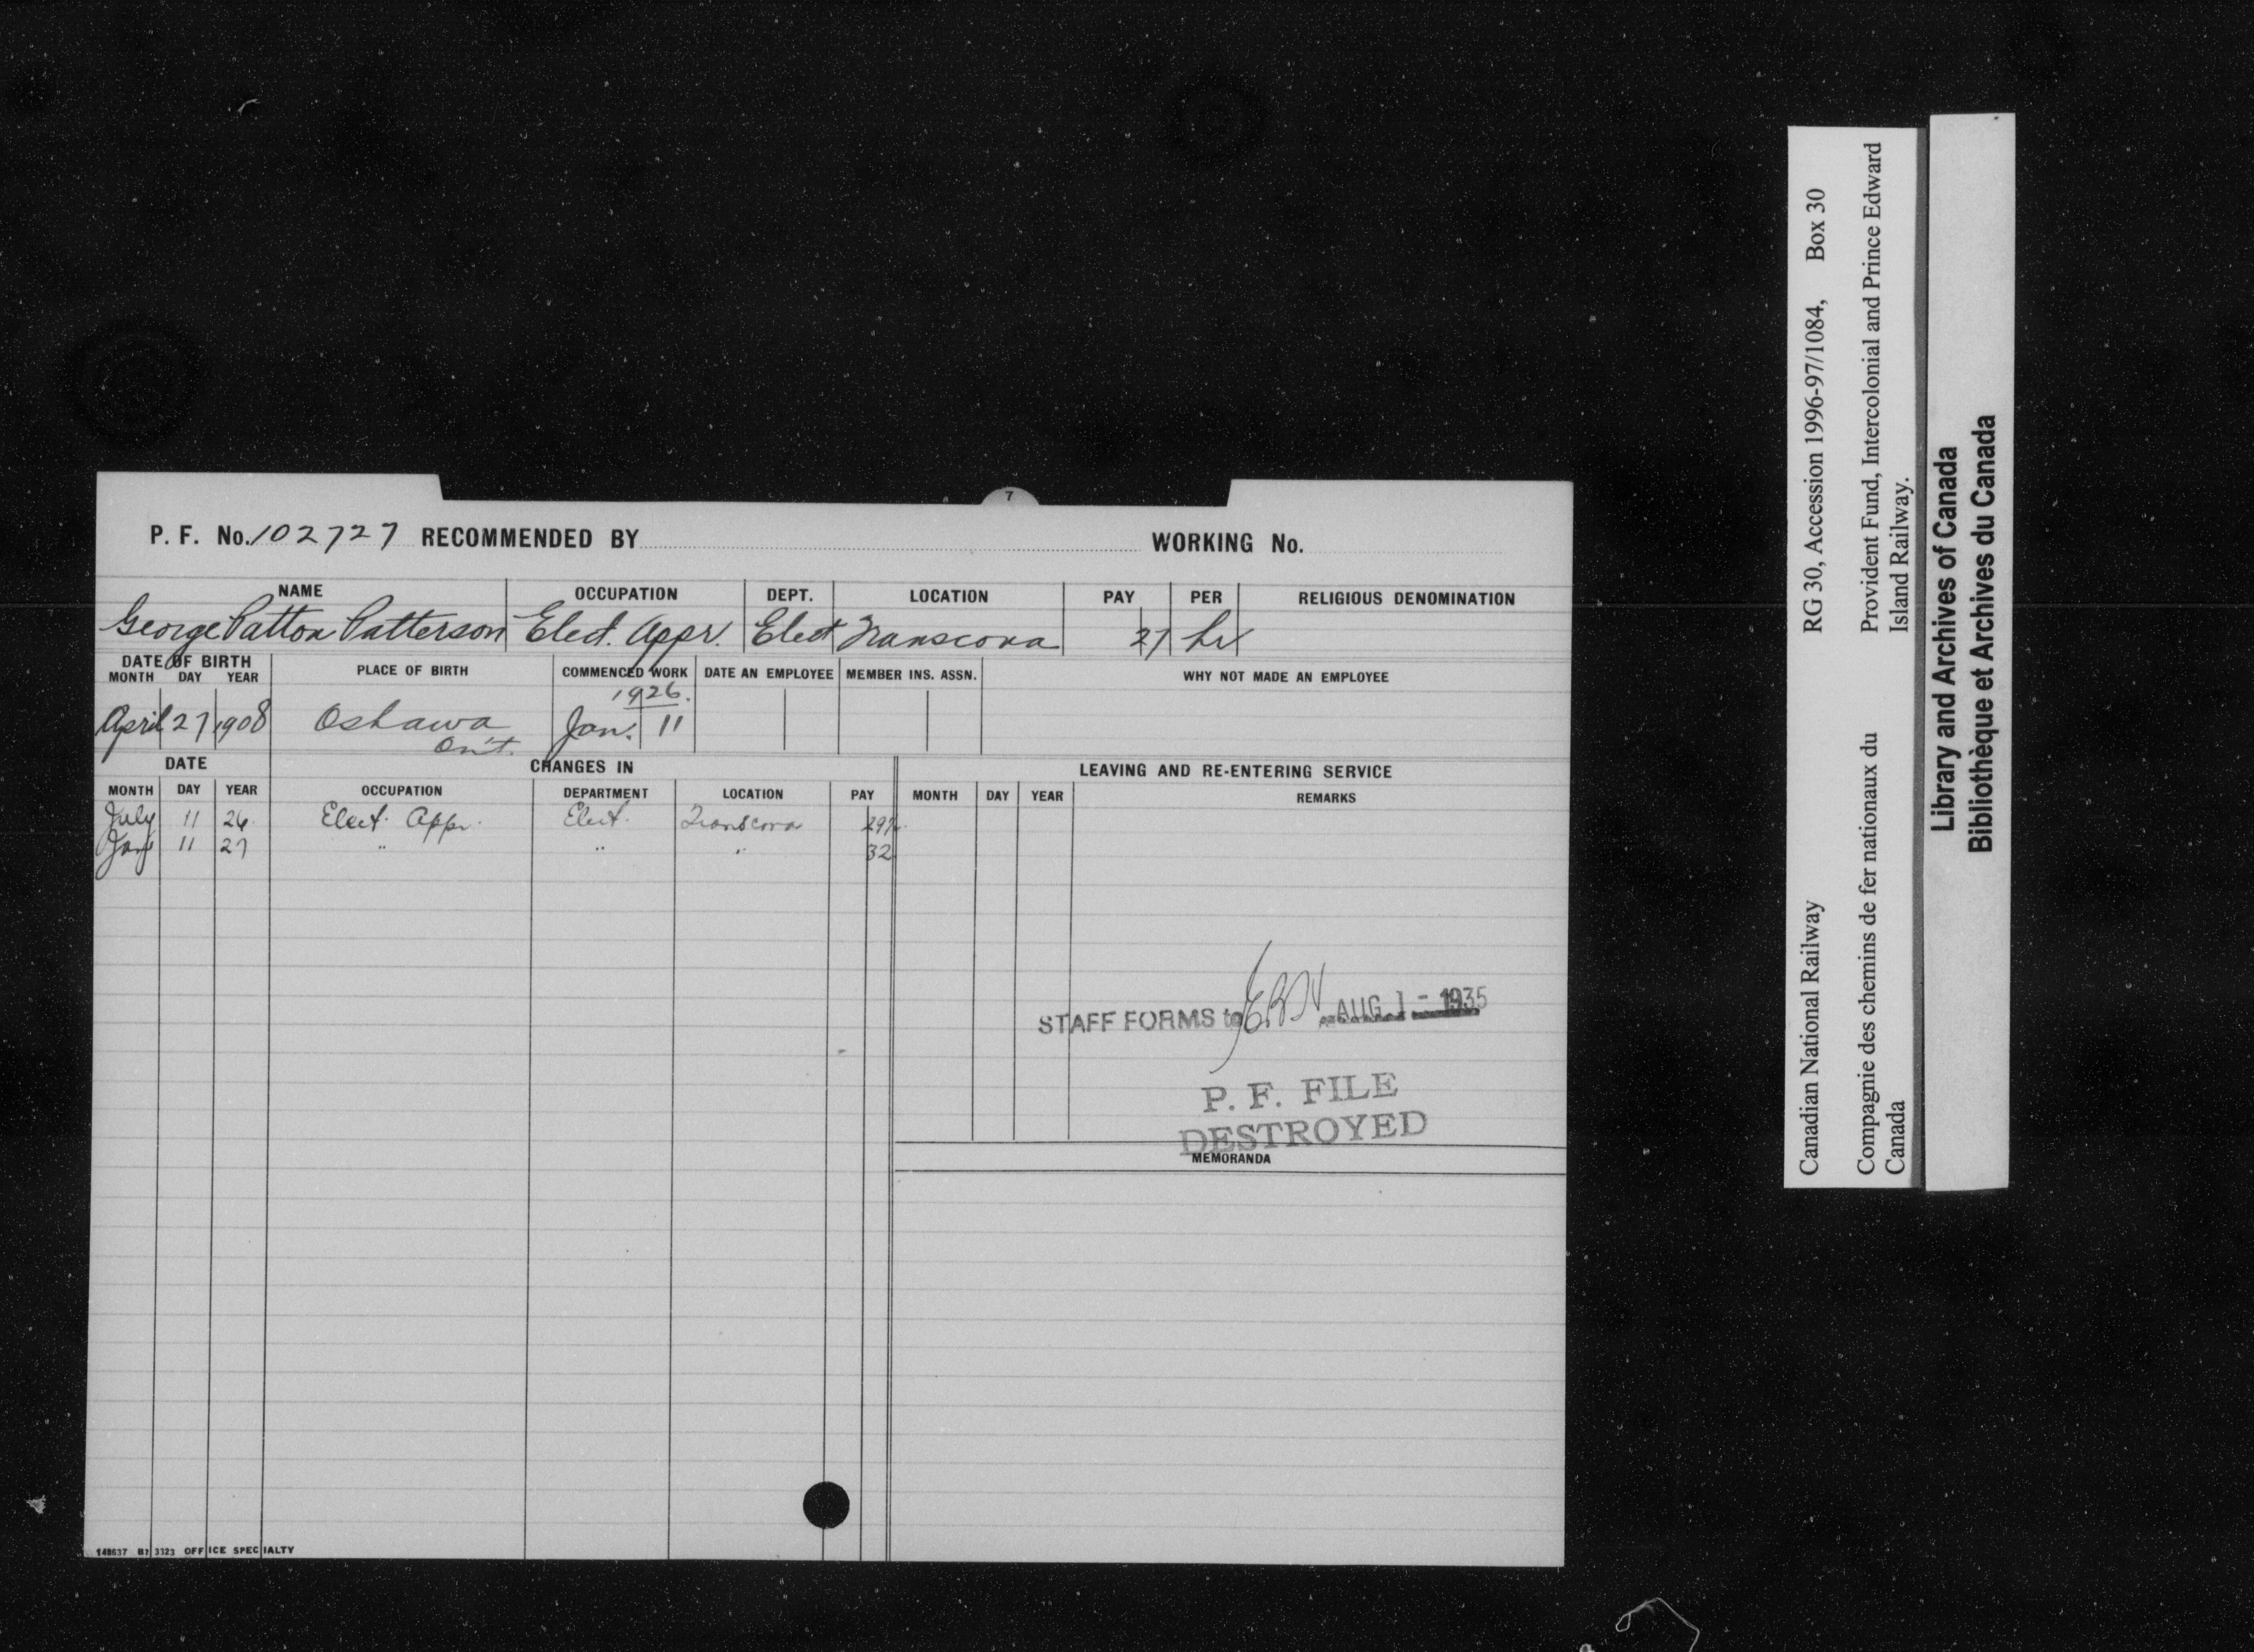 7
P. F. No. 102727 RECOMMENDED BY WORKING No.
NAME OCCUPATION DEPT. LOCATION PAY PER RELIGIOUS DENOMINATION
George Patton Patterson Elect. Appr. Elect Transcona 27 hr
DATE OF BIRTH PLACE OF BIRTH COMMENCED WORK DATE AN EMPLOYEE MEMBER INS. ASSN. WHY NOT MADE AN EMPLOYEE
MONTH DAY YEAR
1926.
April 27 1908 Oshawa Jan. 11
Ont.
DATE CHANGES IN LEAVING AND RE-ENTERING SERVICE
MONTH DAY YEAR OCCUPATION DEPARTMENT LOCATION PAY MONTH DAY YEAR REMARKS
July 11 26 Elect. Appr. Elect. Transcona 29½
Jany 11 27 " " " 32
STAFF FORMS to AUG 1 - 1935
P. F. FILE
DESTROYED
MEMORANDA
148637 B1 3323 OFFICE SPECIALTY
Canadian National Railway RG 30, Accession 1996-97/1084, Box 30
Compagnie des chemins de fer nationaux du Canada
Provident Fund, Intercolonial and Prince Edward Island Railway.
Library and Archives of Canada
Bibliothèque et Archives du Canada